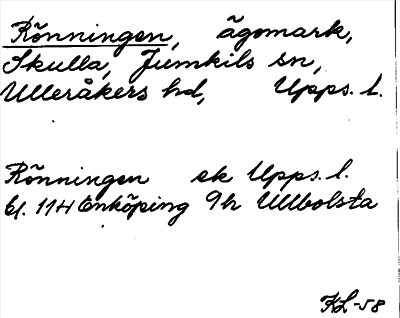 Rönningen, ägomark,
Skulla, Jumkils sn,
Ulleråkers hd, Upps. l.
Rönningen ek Upps. l.
bl. 11H Enköping 9h Ullbolsta
KL-58